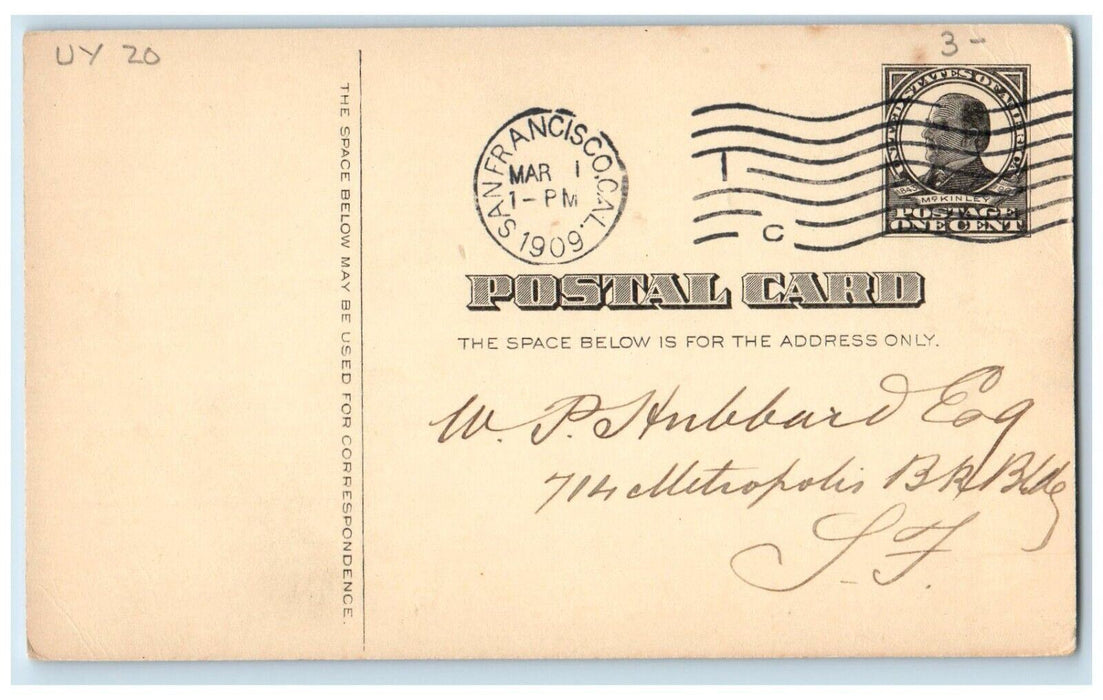 UY 20
3-
THE SPACE BELOW MAY BE USED FOR CORRESPONDENCE.
SAN FRANCISCO, CAL.
MAR 1
1-PM
1909.
I
C
UNITED STATES OF AMERICA
1843
McKINLEY
POSTAGE
ONE CENT
POSTAL CARD
THE SPACE BELOW IS FOR THE ADDRESS ONLY.
W. P. Hubbard Esq
714 Metropolis Bk Bldg
S. F.